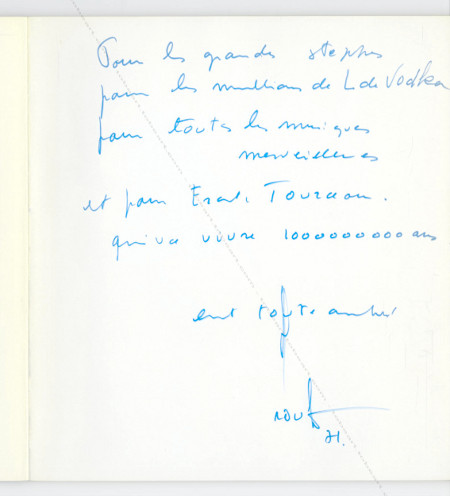 Pour les grandes steppes
pour les millions de L de Vodka
pour toutes les musiques
merveilleuses
et pour
qui va vivre 1000000000 ans
en toute amitié
71.